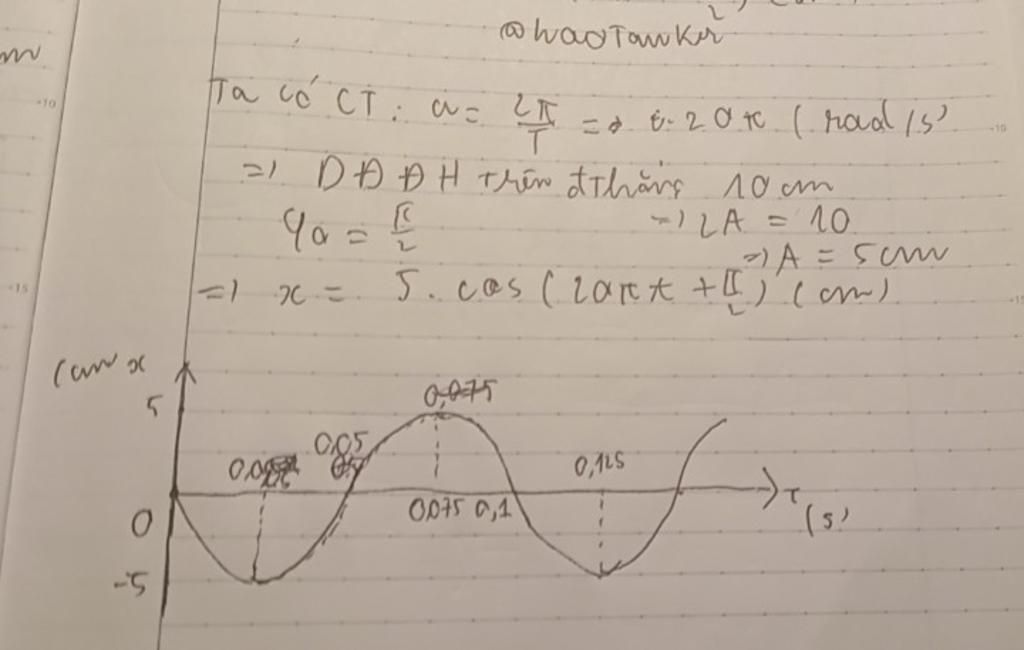 @haoTawKir²
m
Ta có CT: ω = 2π/T => 20π (rad/s)
=> DĐĐH trên đthẳng 10 cm
φ₀ = π/2 => 2A = 10
=> A = 5cm
=> x = 5. cos (20πt + π/2) (cm)
(cm x
5
0,075
0,05
0,125
0,075 0,1
t
0
(s)
-5